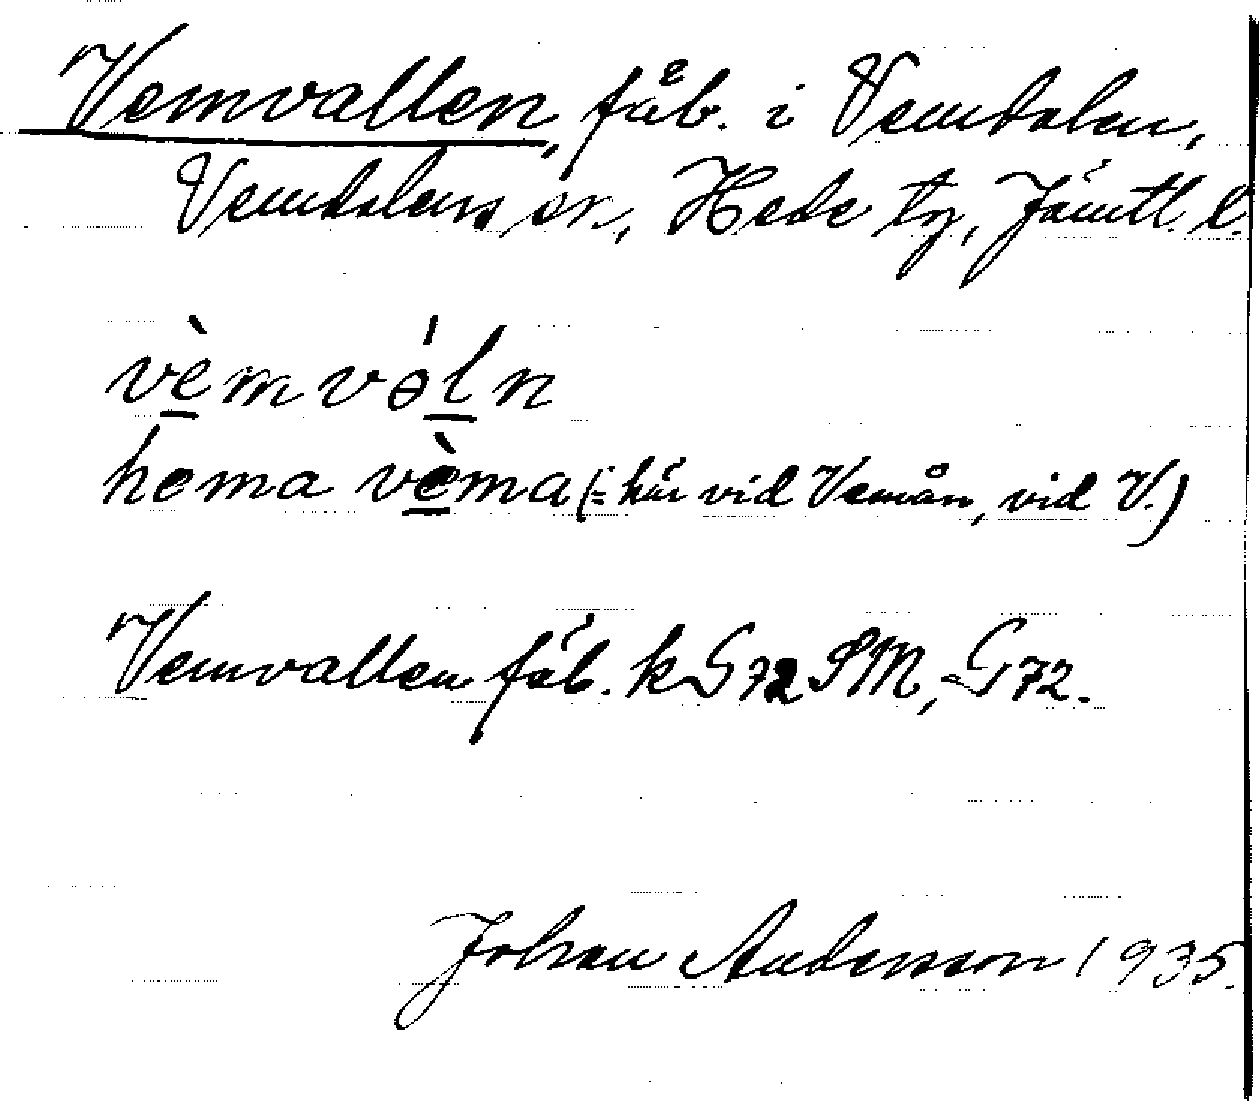 Vemvallen, fäb. i Vemdalen,
Vemdalens sn, Hede tg, Jämtl. l.
vè̱mvəḻ́n
hema vè̱ma (= här vid Vemån, vid V.)
Vemvallen fäb. k G72 SM, G72.
Johan Andersson 1935.